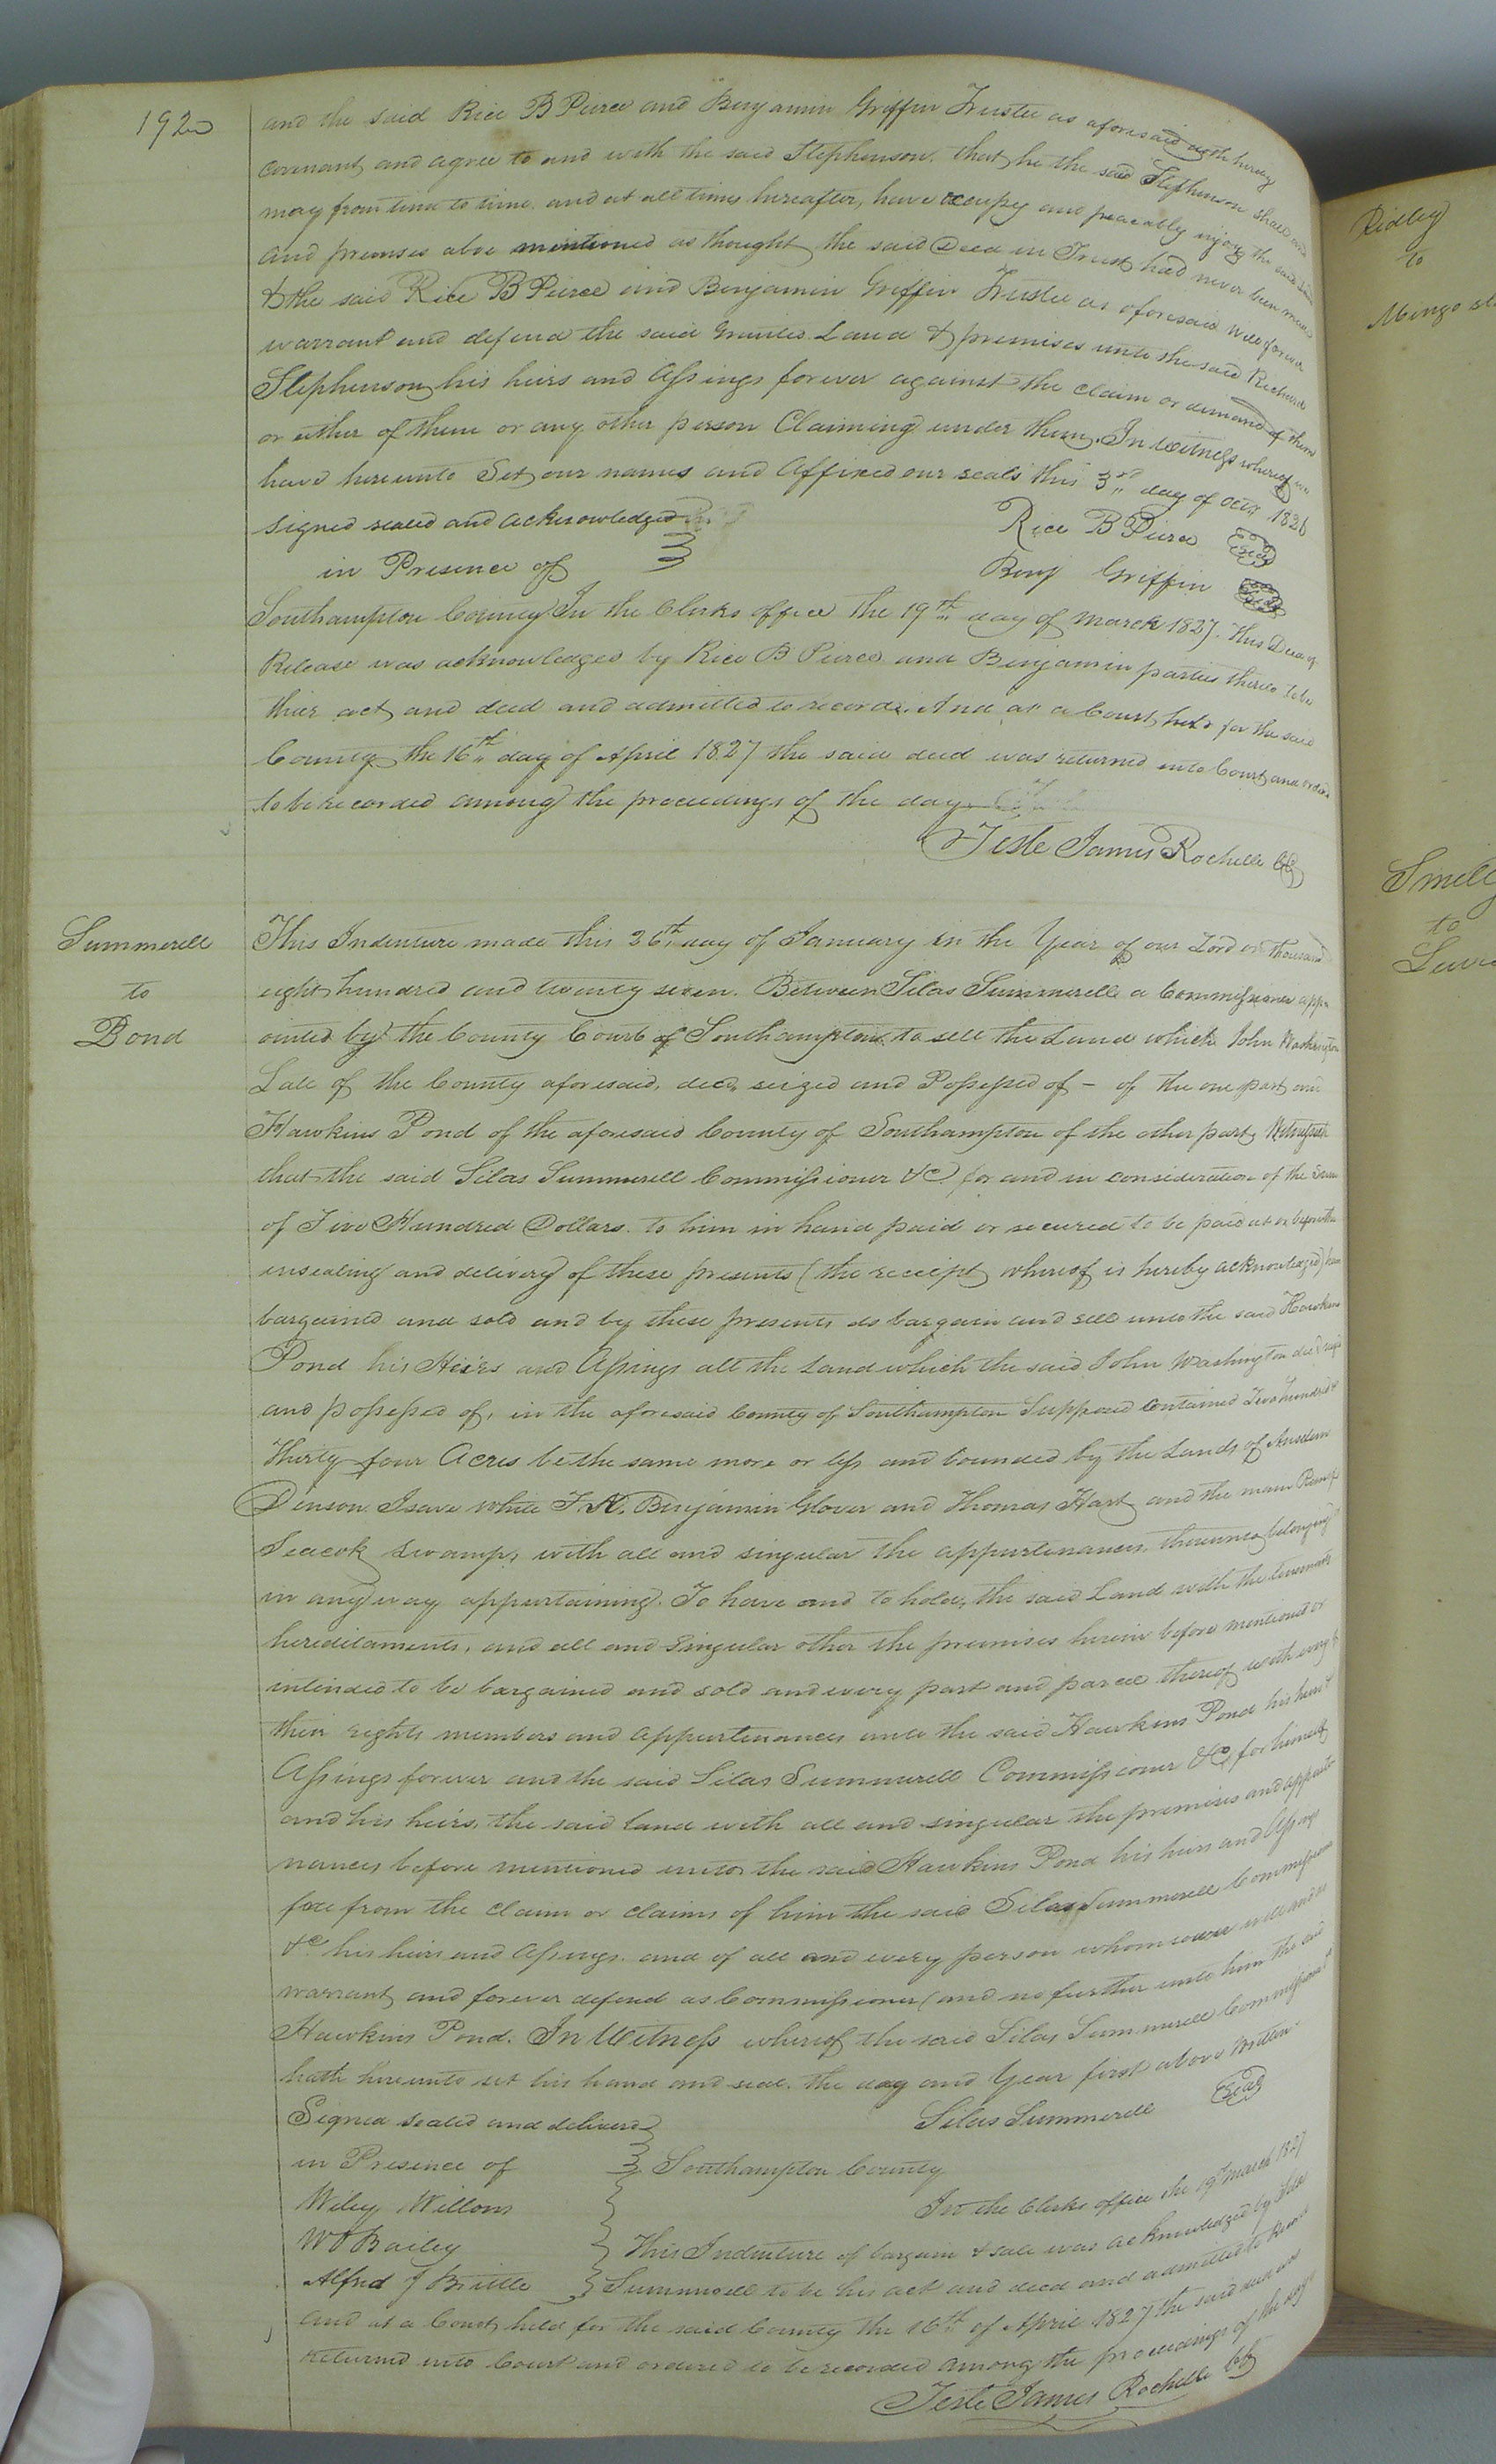 192
and the said Rice B Pierce and Benjamin Griffin Trustee as aforesaid doth hereby
covenant and agree to and with the said Stephenson. that he the said Stephenson shall and
may from time to time and at all times hereafter, have occupy and peaceably enjoy the said
and premises abov mentioned as thought the said Deed in Trust had never been made
& the said Rice B Pierce and Benjamin Griffin Trustee as aforesaid will forever
warrant and defend the said Granted Land & premises unto the said Richard
Stephenson his heirs and Assings forever against the claim or demand of them
or either of them or any other person Claiming under them. In witness whereof we
have hereunto Set our names and Affixed our seals this 3rd day of Octr 1826
signed sealed and acknowledged
in Presence of
Rice B Pierce Seal
Benj Griffin Seal
Southampton County In the Clerks office the 19th day of March 1827. This Deed of
Release was acknowledged by Rice B Pierce and Benjamin parties thereto to be
thier act and deed and admitted to record. And at a Court held for the said
County the 16th day of April 1827 the said deed was returned into Court and ordered
to be recorded among the proceedings of the day
Teste James Rochelle CC
Summerell
to
Pond
This Indenture made this 26th day of January in the Year of our Lord on thousand
eight hundred and twenty seven. Between Silas Summerell a Commissioner app
ointed by the County Court of Southampton to sell the Land which John Washington
Late of the County aforesaid, decd. seized and Possessed of - of the one part and
Hawkins Pond of the aforesaid County of Southampton of the other part, Witnesseth
that the said Silas Summerell Commissioner &C for and in consideration of the Sum
of Five Hundred Dollars. to him in hand paid or secured to be paid at or before the
ensealing and delivery of these presents (the receipt whereof is hereby acknowledged) have
bargained and sold and by these presents do bargain and sell unto the said Hawkins
Pond his Heirs and Assings all the Land which the said John Washington decd
and possessed of, in the aforesaid County of Southampton Supposed Contained Two hundred &
Thirty four Acres be the same more or less and bounded by the Lands of Anselem
Denson. Isave White F. K. Benjamin Glover and Thomas Hart and the main Run of
Seacok Swamp, with all and singular the appurtenances, thereunto belonging
in any way appurtaining. To have and to hold, the said Land with the tenements
hereditaments, and all and Singular other the premises herein before mentioned or
intended to be bargained and sold and every part and parcel thereof with every of
thier rights members and Appurtenances unto the said Hawkins Pond his heirs &
Assings forever and the said Silas Summerell Commissioner &C, for himself
and his heirs, the said land with all and singular the premises and appurte
nances before mentioned unto the said Hawkins Pond his heirs and Assings
free from the claim or claims of him the said Silas Summerell Commissioner
&C his heirs and Assings. and of all and every person whomsoever will and do
warrant and forever defend as Commissioner (and no further unto him the said
Hawkins Pond. In Witness whereof the said Silas Summerell Commissioner &
hath hereunto set his hand and seal. the day and Year first above Written
Signed sealed and deliverd
Silas Summerell Seal
in Presence of
Southampton County
Wiley Willons
In the Clerks office the 19th March 1827
W Bailey
This Indenture of bargain & sale was acknowledged by Silas
Alfred J Brittle
Summerell to be his act and deed and admitted to Record
And at a Court held for the said County the 16th of April 1827 the said deed was
returned into Court and ordered to be recorded among the proceedings of the day
Teste James Rochelle CC
Ridley
to
Mingo
to